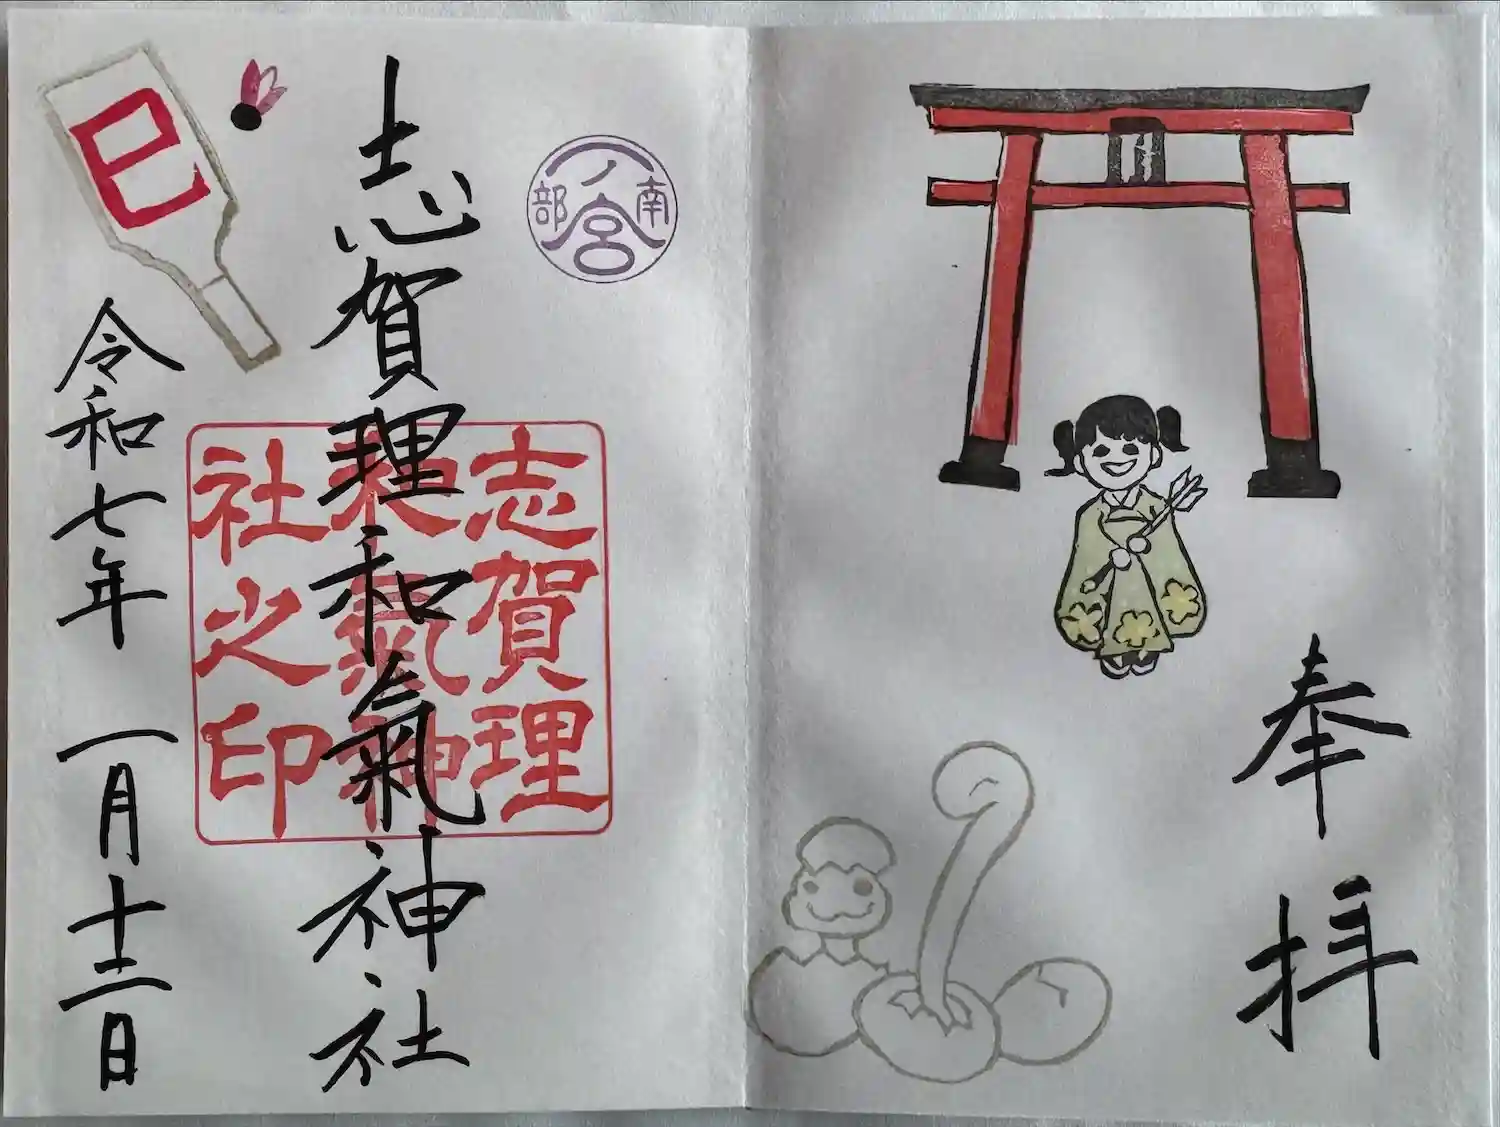 奉拝
南部
一ノ宮
志賀理和氣神社
志賀理
氣神
社之印
巳
令和七年 一月十二日